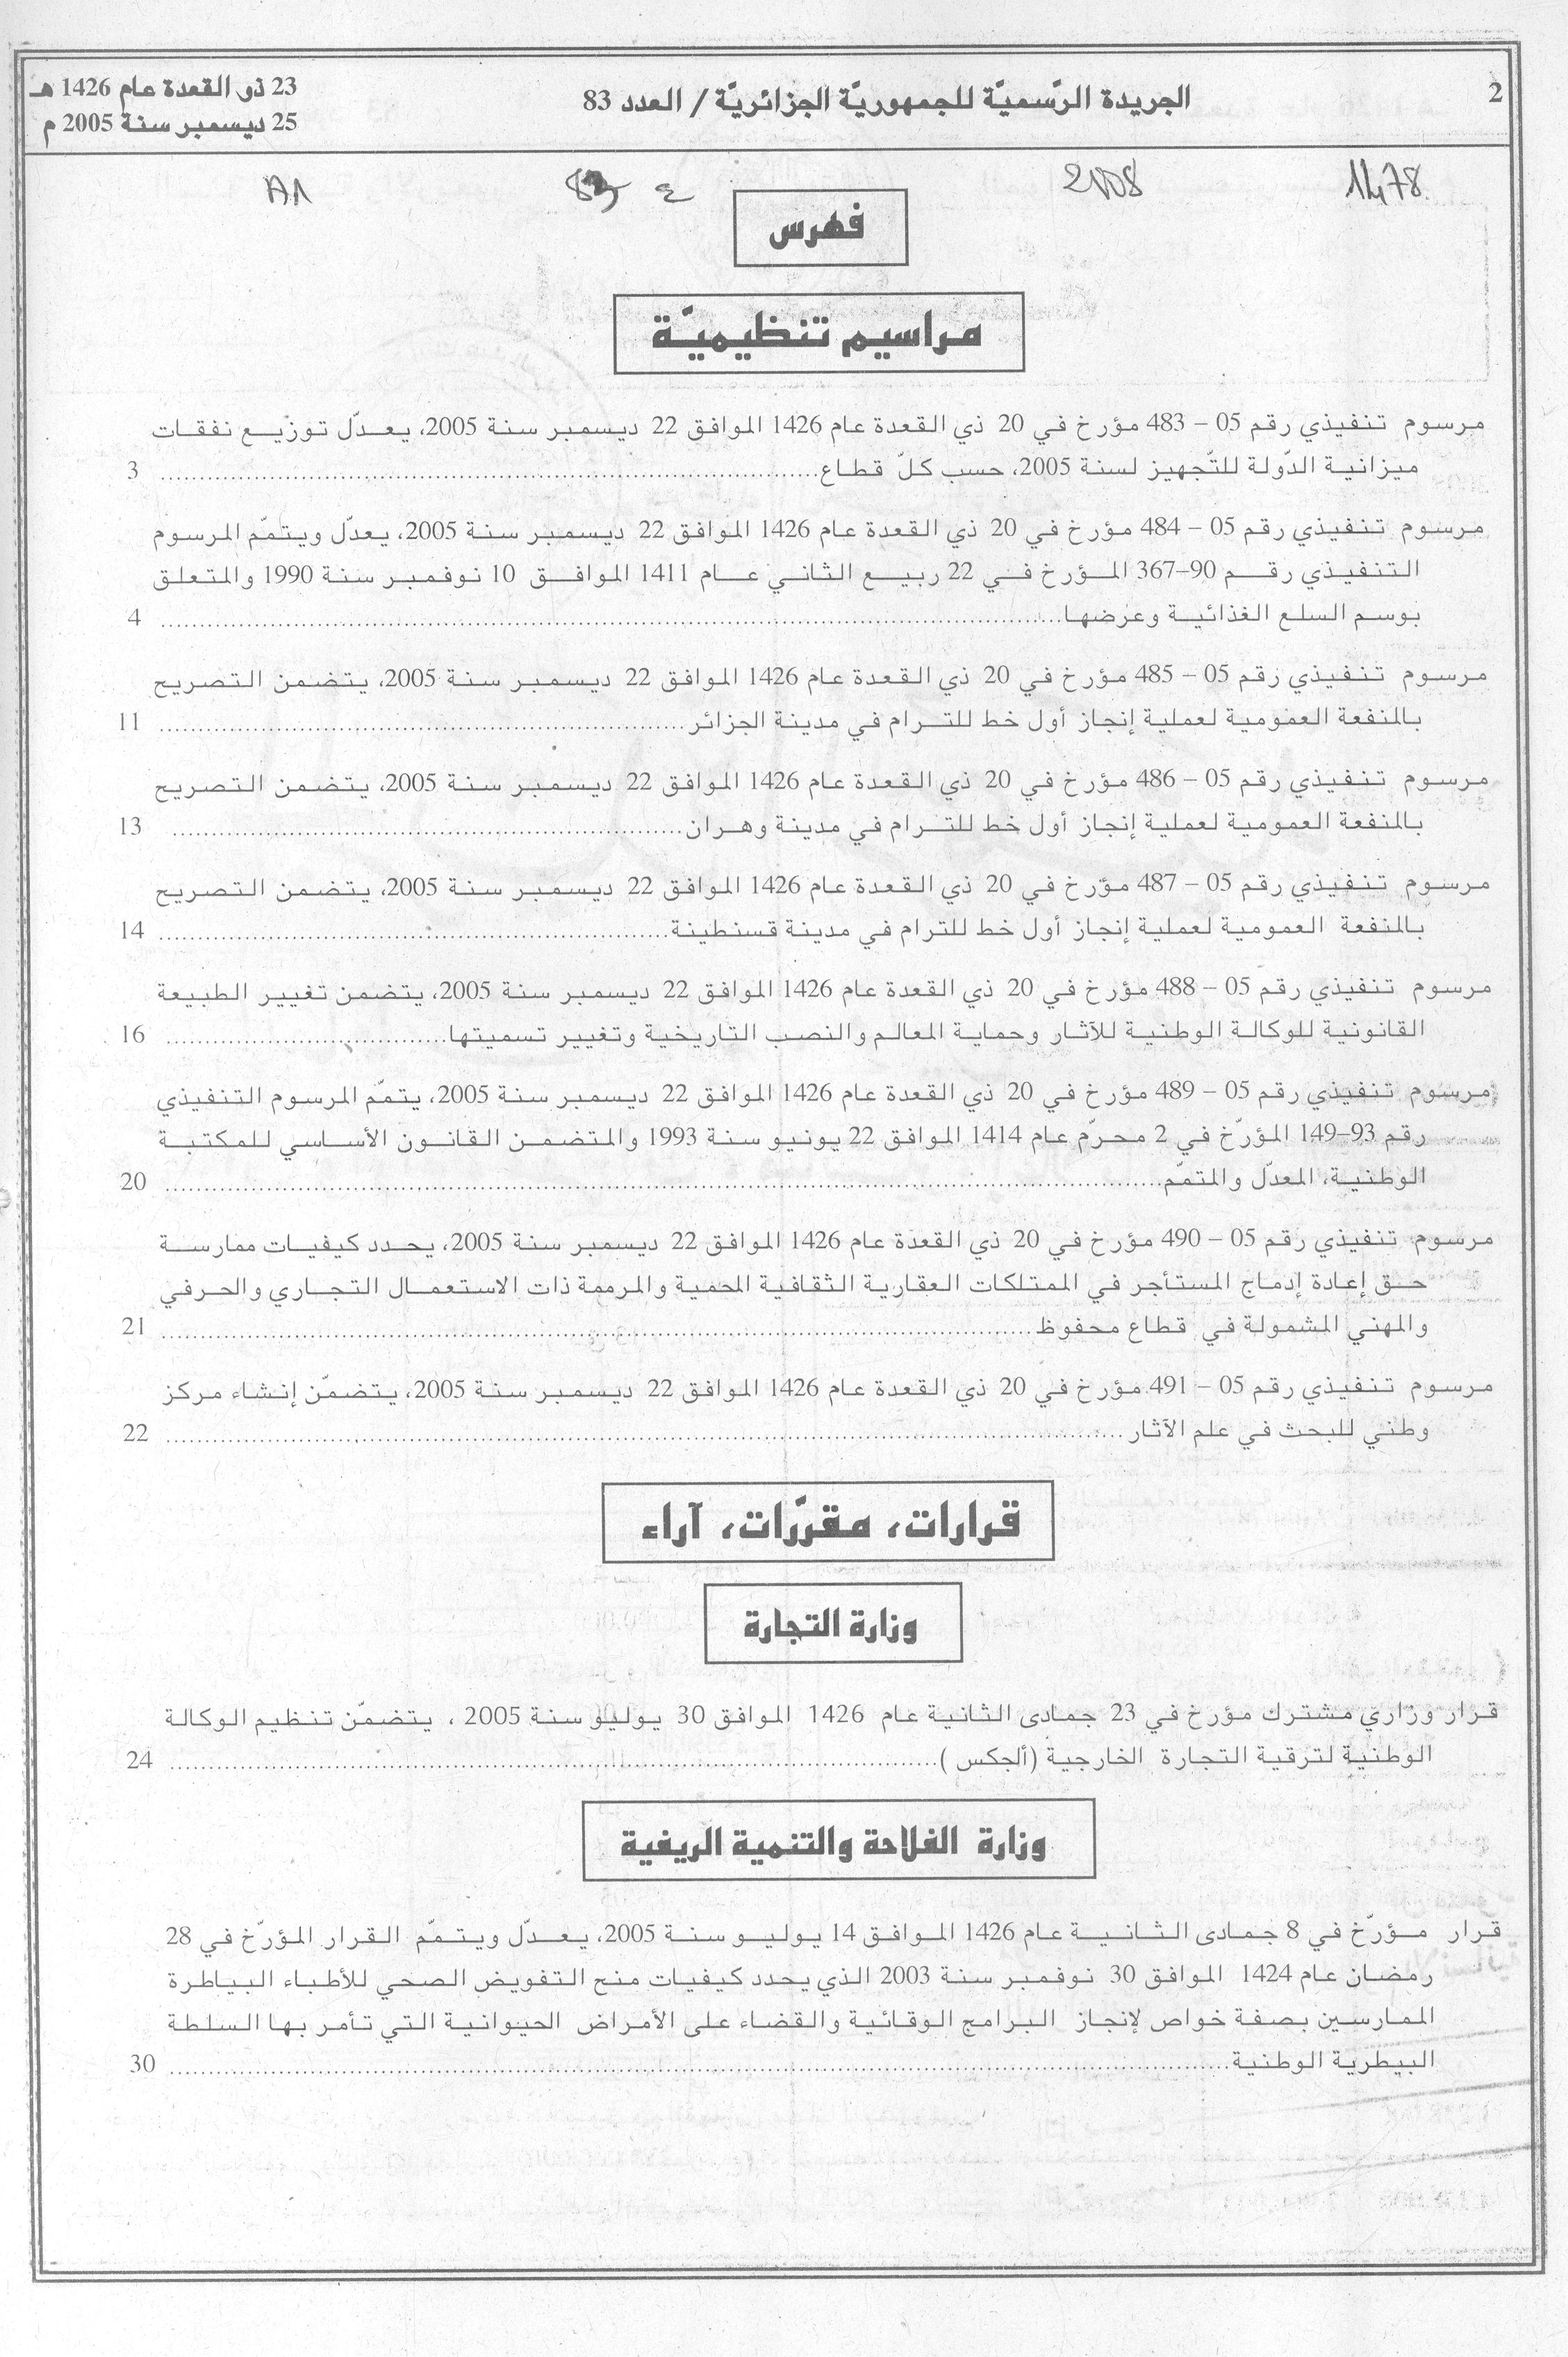 2
الجريدة الرّسميّة للجمهوريّة الجزائريّة / العدد 83
23 ذو القعدة عام 1426 هـ
25 ديسمبر سنة 2005 م
1478
2008
83 ع
A1
فهرس
مراسيم تنظيميّة
مرسوم تنفيذي رقم 05 – 483 مؤرخ في 20 ذي القعدة عام 1426 الموافق 22 ديسمبر سنة 2005، يعدّل توزيع نفقات
ميزانية الدّولة للتّجهيز لسنة 2005، حسب كلّ قطاع .......... 3
مرسوم تنفيذي رقم 05 – 484 مؤرخ في 20 ذي القعدة عام 1426 الموافق 22 ديسمبر سنة 2005، يعدّل ويتمّم المرسوم
التنفيذي رقم 90–367 المؤرخ في 22 ربيع الثاني عام 1411 الموافق 10 نوفمبر سنة 1990 والمتعلق
بوسم السلع الغذائية وعرضها .......... 4
مرسوم تنفيذي رقم 05 – 485 مؤرخ في 20 ذي القعدة عام 1426 الموافق 22 ديسمبر سنة 2005، يتضمن التصريح
بالمنفعة العمومية لعملية إنجاز أول خط للترام في مدينة الجزائر .......... 11
مرسوم تنفيذي رقم 05 – 486 مؤرخ في 20 ذي القعدة عام 1426 الموافق 22 ديسمبر سنة 2005، يتضمن التصريح
بالمنفعة العمومية لعملية إنجاز أول خط للترام في مدينة وهران .......... 13
مرسوم تنفيذي رقم 05 – 487 مؤرخ في 20 ذي القعدة عام 1426 الموافق 22 ديسمبر سنة 2005، يتضمن التصريح
بالمنفعة العمومية لعملية إنجاز أول خط للترام في مدينة قسنطينة .......... 14
مرسوم تنفيذي رقم 05 – 488 مؤرخ في 20 ذي القعدة عام 1426 الموافق 22 ديسمبر سنة 2005، يتضمن تغيير الطبيعة
القانونية للوكالة الوطنية للآثار وحماية المعالم والنصب التاريخية وتغيير تسميتها .......... 16
مرسوم تنفيذي رقم 05 – 489 مؤرخ في 20 ذي القعدة عام 1426 الموافق 22 ديسمبر سنة 2005، يتمّم المرسوم التنفيذي
رقم 93–149 المؤرّخ في 2 محرّم عام 1414 الموافق 22 يونيو سنة 1993 والمتضمن القانون الأساسي للمكتبة
الوطنية، المعدّل والمتمّم .......... 20
مرسوم تنفيذي رقم 05 – 490 مؤرخ في 20 ذي القعدة عام 1426 الموافق 22 ديسمبر سنة 2005، يحدد كيفيات ممارسة
حق إعادة إدماج المستأجر في الممتلكات العقارية الثقافية المحمية والمرممة ذات الاستعمال التجاري والحرفي
والمهني المشمولة في قطاع محفوظ .......... 21
مرسوم تنفيذي رقم 05 – 491 مؤرخ في 20 ذي القعدة عام 1426 الموافق 22 ديسمبر سنة 2005، يتضمّن إنشاء مركز
وطني للبحث في علم الآثار .......... 22
قرارات، مقرّرات، آراء
وزارة التجارة
قرار وزاري مشترك مؤرخ في 23 جمادى الثانية عام 1426 الموافق 30 يوليو سنة 2005 ، يتضمّن تنظيم الوكالة
الوطنية لترقية التجارة الخارجية (ألجكس ) .......... 24
وزارة الفلاحة والتنمية الريفية
قرار مؤرّخ في 8 جمادى الثانية عام 1426 الموافق 14 يوليو سنة 2005، يعدّل ويتمّم القرار المؤرّخ في 28
رمضان عام 1424 الموافق 30 نوفمبر سنة 2003 الذي يحدد كيفيات منح التفويض الصحي للأطباء البياطرة
الممارسين بصفة خواص لإنجاز البرامج الوقائية والقضاء على الأمراض الحيوانية التي تأمر بها السلطة
البيطرية الوطنية .......... 30